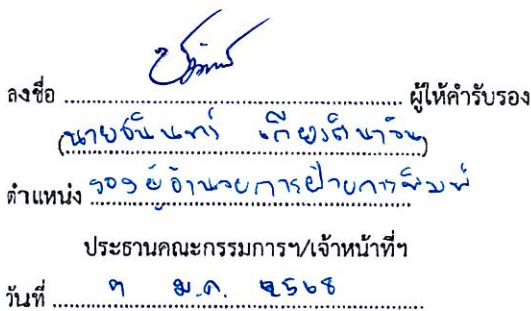 ลงชื่อ ........................................ ผู้ให้คำรับรอง
(นาย
ตำแหน่ง รองผู้อำนวยการฝ่ายการพิมพ์
ประธานคณะกรรมการฯ/เจ้าหน้าที่ฯ
วันที่ ๓ ม.ค. ๒๕๖๘